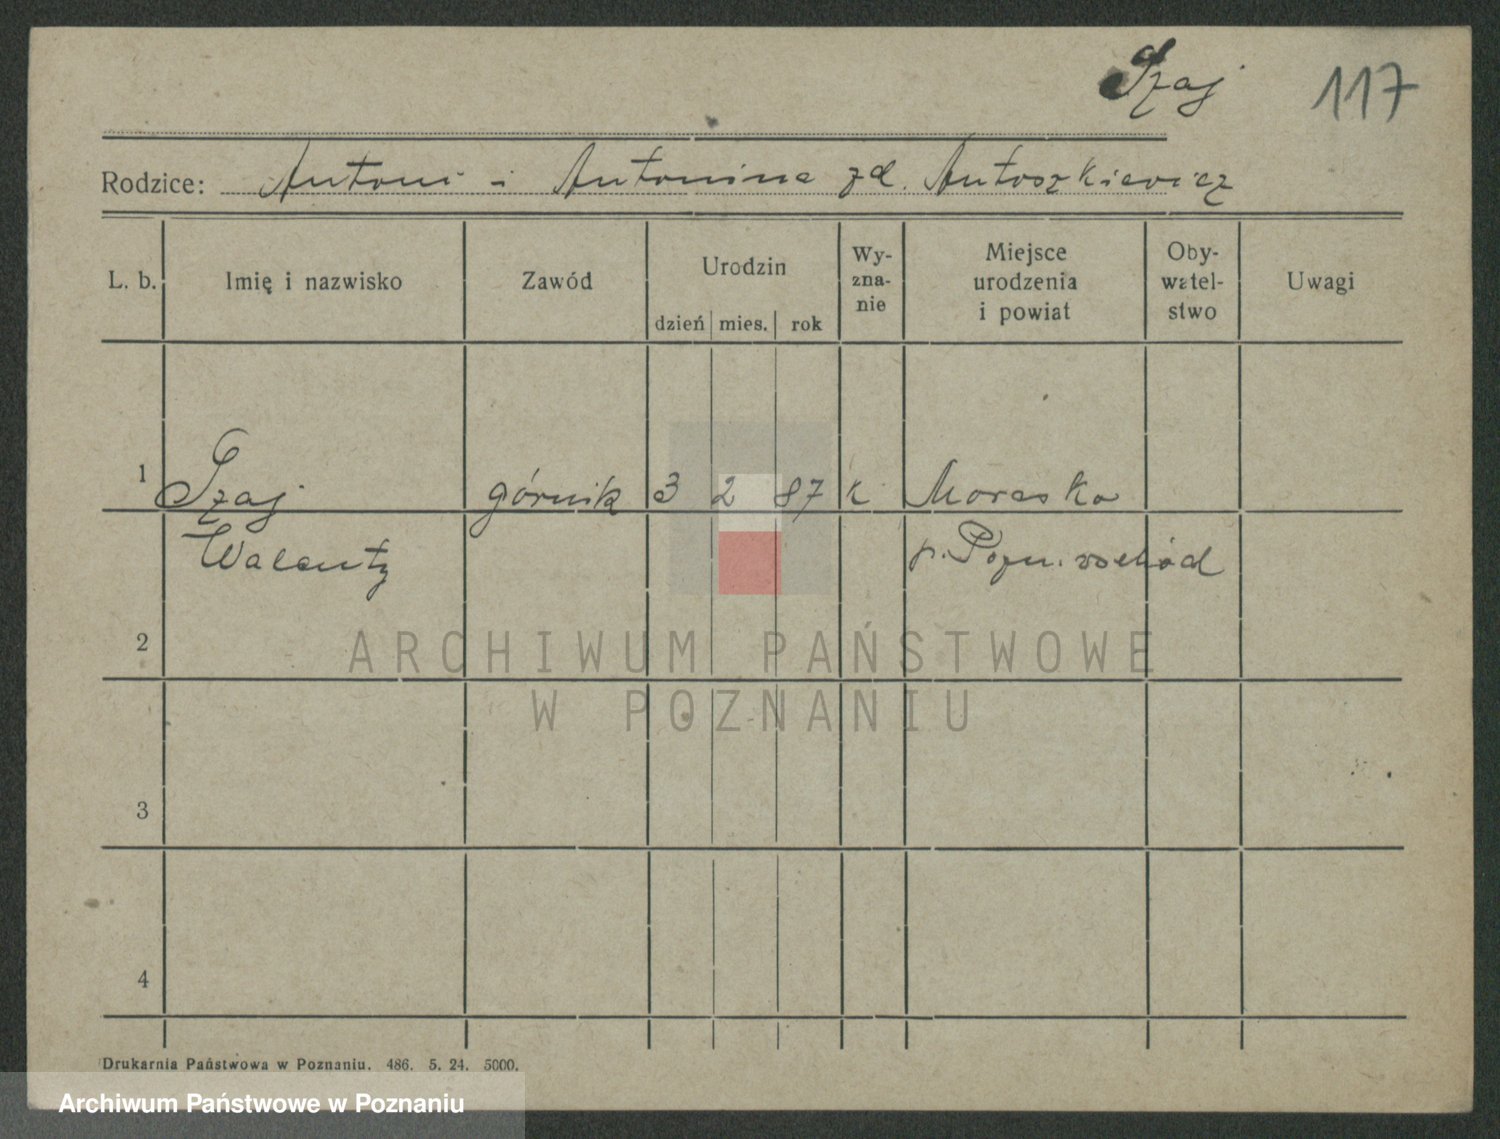 Szaj 117
Rodzice: Antoni i Antonina zd. Antoszkiewicz
L. b. Imię i nazwisko Zawód Urodzin dzień mies. rok Wy-zna-nie Miejsce urodzenia i powiat Oby-watel-stwo Uwagi
1 Szaj górnik 3 2 87 k Morasko
Walenty p. Pozn. wschód
2
ARCHIWUM PAŃSTWOWE
W POZNANIU
3
4
Drukarnia Państwowa w Poznaniu. 486. 5. 24. 5000.
Archiwum Państwowe w Poznaniu